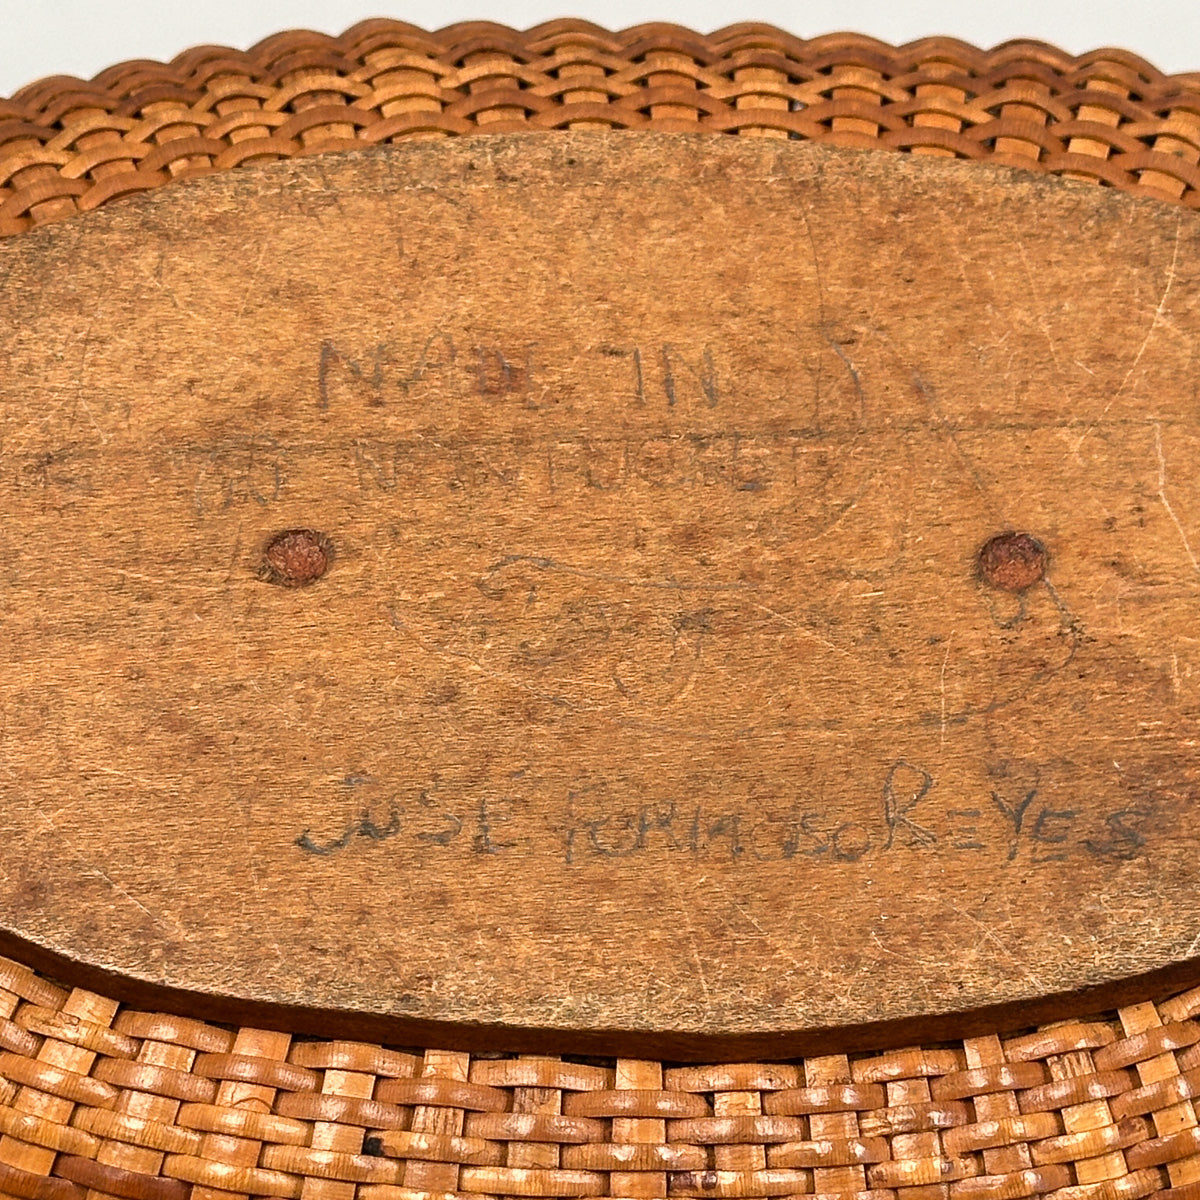 MADE IN
NANTUCKET
JOSE FORMOSO REYES